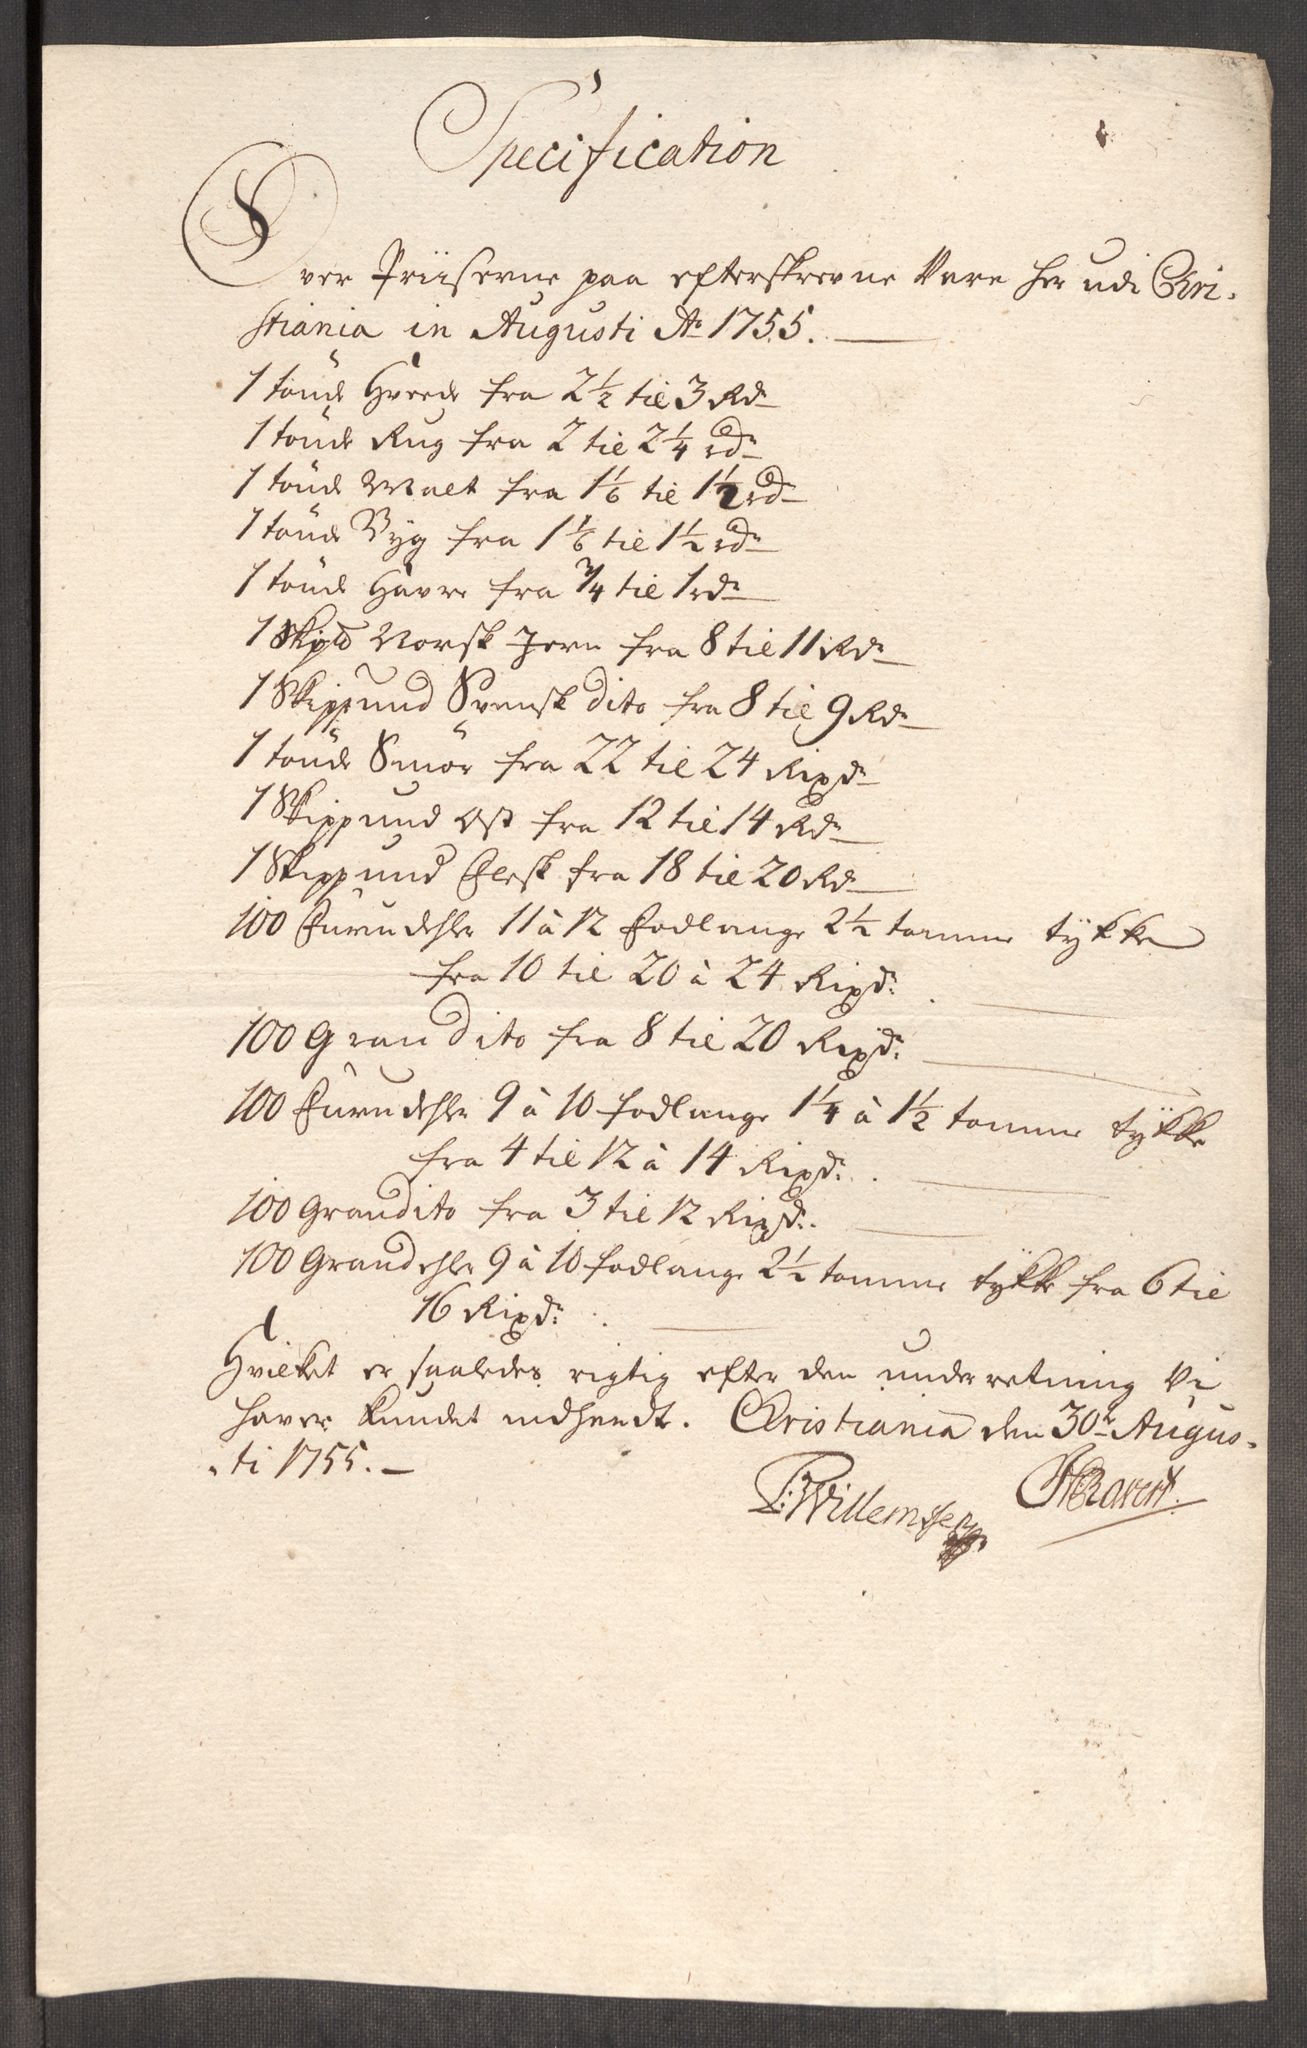 Specification
Over Priiserne paa efterskrevne Vare her udi Chri-
stiania in Augusti Ao 1755.
1 tönde Hvede fra 2 1/2 til 3 Rdr
1 tönde Rug fra 2 til 2 1/4 rdr
1 tönde Malt fra 1 1/6 til 1 1/2 rdr
1 tönde Byg fra 1 1/6 til 1 1/2 rdr
1 tönde Havre fra 3/4 til 1 rdr
1 Skپ℔ Norsk Jern fra 8 til 11 Rdr
1 Skippund Svensk dito fra 8 til 9 Rdr
1 tönde Smör fra 22 til 24 Rixdr
1 Skippund Ost fra 12 til 14 Rdr
1 Skippund Flesk fra 18 til 20 Rdr
100 Furudehle 11 à 12 Fodlange 2 1/2 tomme tykke
fra 10 til 20 à 24 Rixdr.
100 Gran dito fra 8 til 20 Rixdr.
100 Furudehle 9 à 10 fodlange 1 1/4 à 1 1/2 tomme tykke
fra 4 til 12 à 14 Rixdr.
100 Gran dito fra 3 til 12 Rixdr.
100 Grandehle 9 à 10 fodlange 2 1/2 tomme tykke fra 6 til
16 Rixdr.
Hvilket er saaledes rigtig efter den underretning Vi
haver kundet indhendt. Christiania den 30te Augus-
ti 1755.
P: Willemsen
Ravert.